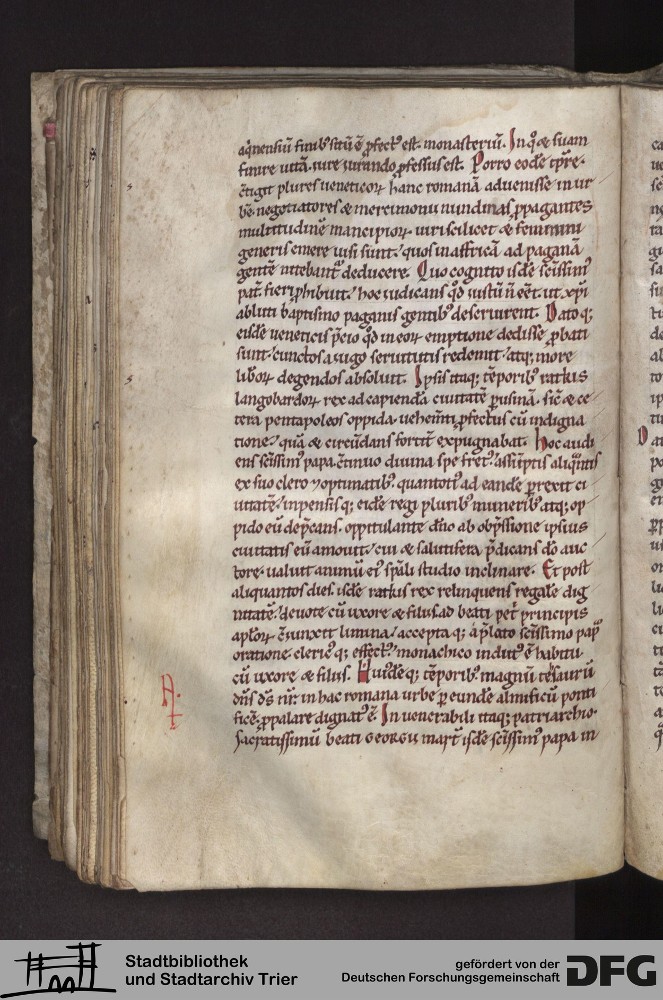 aqͥnensiū finib' sitū ē ꝓfect' est monasteriū. In qͦ & suam
finire uitā iure iurando ꝓfessus est. Porro eodē tꝑre.
ↄtigit plures ueneticoꝝ hanc romanā aduenisse in ur
bē negotiatores & mercimonii nundinas ꝓpagantes
multitudinē mancipioꝝ uiri scilicet & feminini
generis emere uisi sunt. quos in affricā ad paganā
gentē nitebant᷑ deducere. Quo cognito isdē sc̄issim'
pat᷑ fieri ꝓhibuit. hoc iudicans qͦd iustū n̄ eēt ut xp̄i
abluti baptismo paganis gentib' deseruirent. Dato q;
eisdē ueneticis p̄cio qͦd in eoꝝ emptione dedisse ꝓbati
sunt. cunctos a iugo seruitutis redemit. atq; more
libͦoꝝ degendos absoluit. Ipsis itaq; tēporib' ratkis
langobardoꝝ rex ad capiendā ciuitatē ꝑusinā. sic̄ & ce
tera pentapoleos oppida uehem̄ti ꝓfectus cū indigna
tione. quā & circūdans fortit᷑ expugnabat. Hoc audi
ens sc̄issim' papa. ↄtinuo diuina spe fret'. assūptis aliqͣntis
ex suo clero ⁊ optimatib'. quantoti' ad eandē ꝑrexit ci
uitatē. inpensisq; eidē regi plurib' munerib' atq; op
pido eū dep̄cans. oppitulante dn̄o ab obp̄ssione ipsius
ciuitatis eū amouit. cui & salutifera p̄dicans dō auc
tore. ualuit animū ei' sp̄ali studio inclinare. Et post
aliquantos dies. isdē ratkis rex relinquens regalē dig
nitatē. deuote cū uxore & filiis ad beati petͥ principis
apl̄oꝝ ↄiunxit limina. accepta q; a p̄lato sc̄issimo pap̄
oratione. cleric' q; effect'. monachico indut' ē habitu
cū uxore & filiis. Huidē q; tēporib' magnū tesaurū
dn̄s d̄s nr̄. in hac romana urbe ꝑ eundē almificū ponti
ficē ꝓpalare dignat' ē. In uenerabili itaq; patriarchio.
sacratissimū beati GEORGII mart᷑ isdē sc̄issim' papa in
Stadtbibliothek
und Stadtarchiv Trier
gefördert von der
Deutschen Forschungsgemeinschaft
DFG